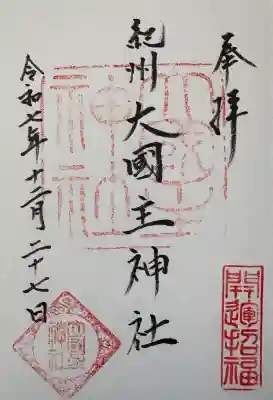 奉拝
開運招福
紀州大國主神社
令和七年十二月二十七日